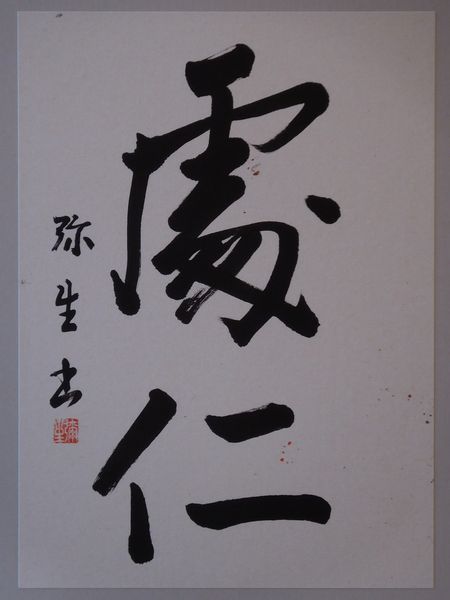 處仁
弥生書